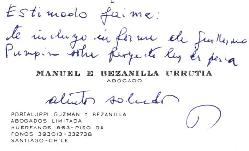 Estimado Jaime:
te incluyo informe de Guillermo
Pumpin sobre proyecto ley de pesca
MANUEL E BEZANILLA URRUTIA
ABOGADO
atento saludo
PORTALUPPI, GUZMAN Y BEZANILLA
ABOGADOS LIMITADA
HUERFANOS 863-PISO 9A
FONOS 393013-332738
SANTIAGO-CHILE